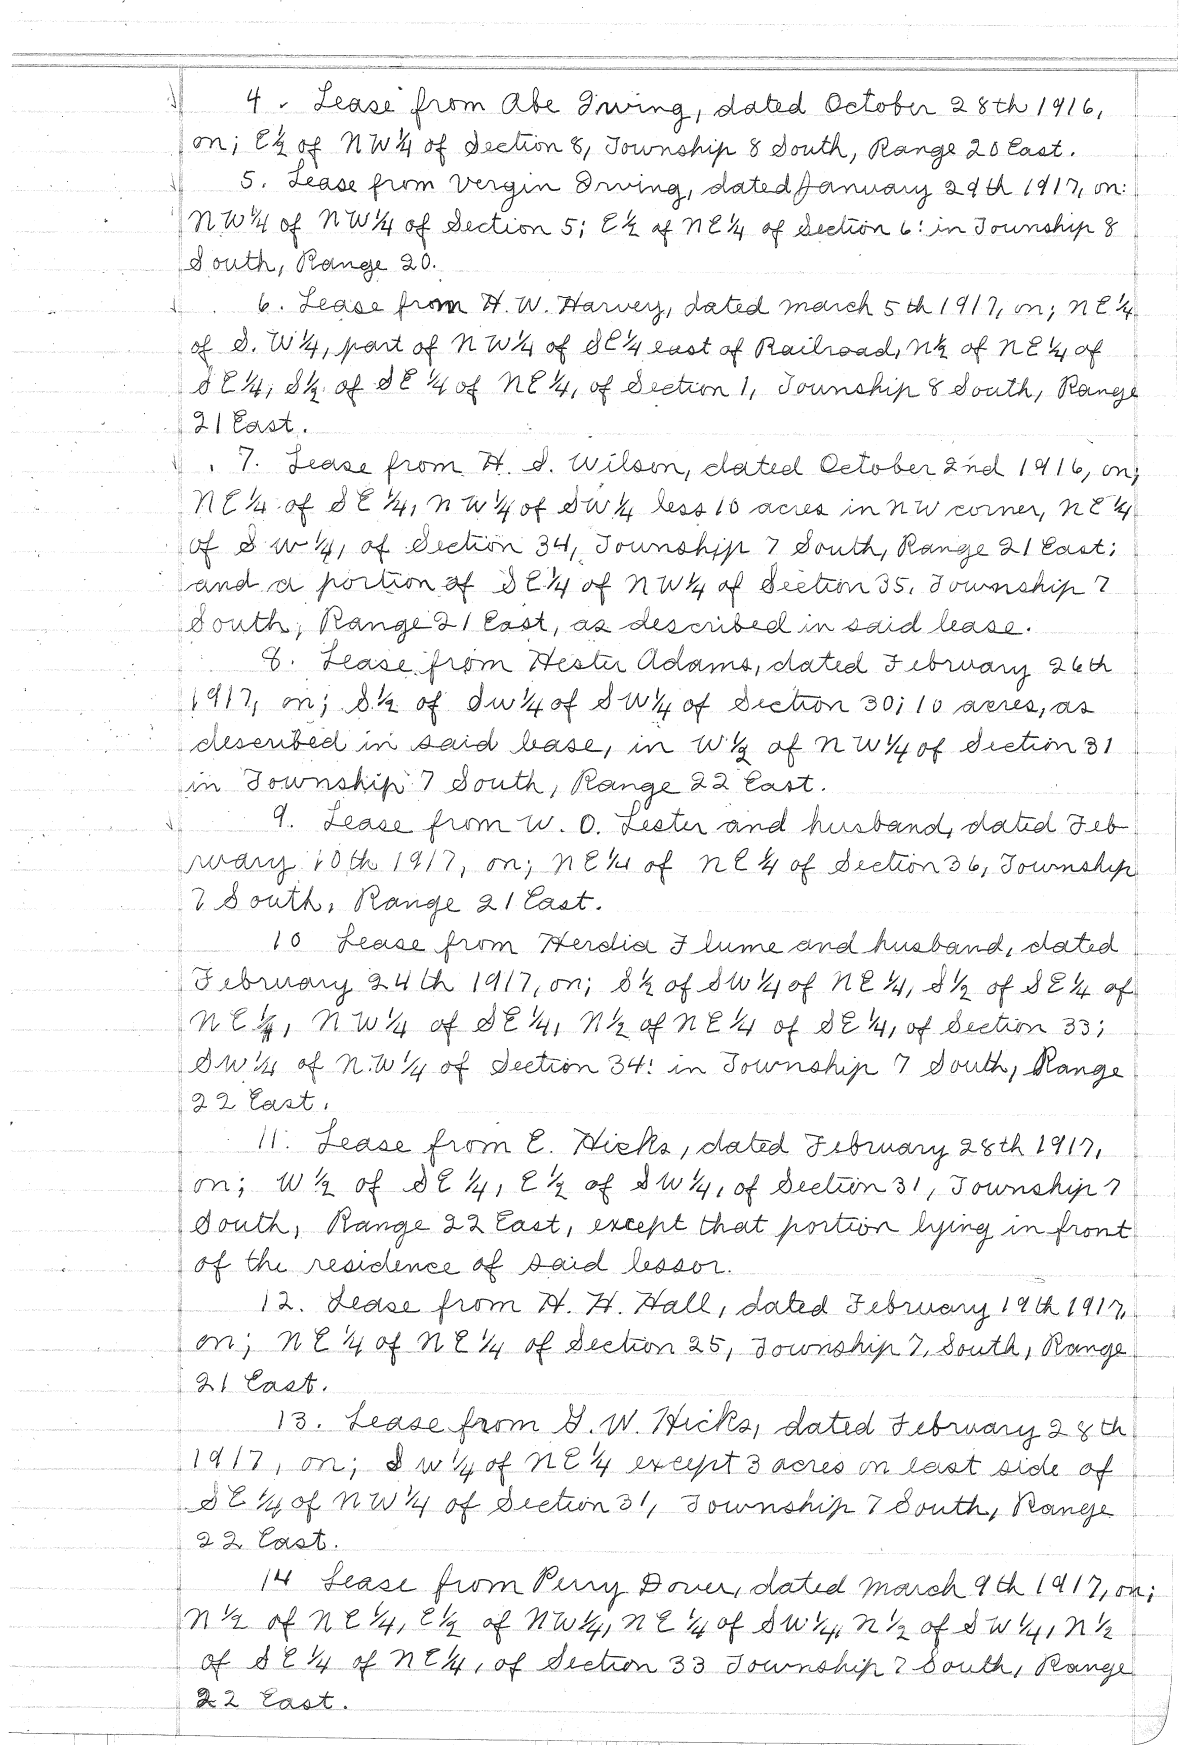 4. Lease from Abe Irving, dated October 28th 1916,
on; E½ of NW¼ of Section 8, Township 8 South, Range 20 East.
5. Lease from Vergin Irving, dated January 29th 1917, on:
NW¼ of NW¼ of Section 5; E½ of NE¼ of Section 6: in Township 8
South, Range 20.
6. Lease from H. W. Harvey, dated March 5th 1917, on; NE¼
of S. W¼, part of NW¼ of SE¼ east of Railroad, N½ of NE¼ of
SE¼, S½ of SE¼ of NE¼, of Section 1, Township 8 South, Range
21 East.
7. Lease from H. S. Wilson, dated October 2nd 1916, on;
NE¼ of SE¼, NW¼ of SW¼ less 10 acres in NW corner, NE¼
of SW¼, of Section 34, Township 7 South, Range 21 East;
and a portion of SE¼ of NW¼ of Section 35, Township 7
South, Range 21 East, as described in said lease.
8. Lease from Hester Adams, dated February 26th
1917, on; S½ of SW¼ of SW¼ of Section 30; 10 acres, as
described in said lease, in W½ of NW¼ of Section 31
in Township 7 South, Range 22 East.
9. Lease from W. O. Lester and husband, dated Feb
ruary 10th 1917, on; NE¼ of NE¼ of Section 36, Township
7 South, Range 21 East.
10 Lease from Herdia Flume and husband, dated
February 24th 1917, on; S½ of SW¼ of NE¼, S½ of SE¼ of
NE¼, NW¼ of SE¼, N½ of NE¼ of SE¼, of Section 33;
SW¼ of N.W¼ of Section 34: in Township 7 South, Range
22 East.
11. Lease from E. Hicks, dated February 28th 1917,
on; W½ of SE¼, E½ of SW¼, of Section 31, Township 7
South, Range 22 East, except that portion lying in front
of the residence of said lessor.
12. Lease from H. H. Hall, dated February 19th 1917,
on; NE¼ of NE¼ of Section 25, Township 7, South, Range
21 East.
13. Lease from G. W. Hicks, dated February 28th
1917, on; SW¼ of NE¼ except 3 acres on east side of
SE¼ of NW¼ of Section 31, Township 7 South, Range
22 East.
14 Lease from Perry Dover, dated March 9th 1917, on;
N½ of NE¼, E½ of NW¼, NE¼ of SW¼, N½ of SW¼, N½
of SE¼ of NE¼, of Section 33 Township 7 South, Range
22 East.